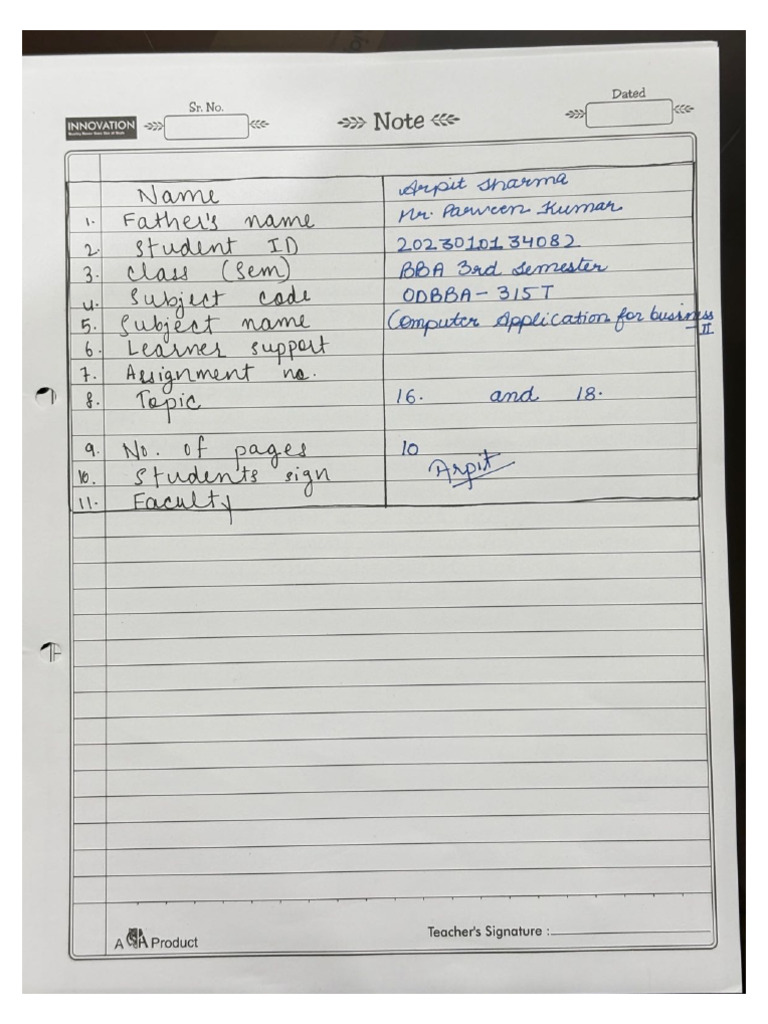 Sr. No.
Dated
INNOVATION
Note
Name Arpit Sharma
1. Father's name Mr. Parveen Kumar
2. Student ID 2023010134082
3. Class (Sem) BBA 3rd Semester
4. Subject code ODBBA-315T
5. Subject name Computer Application for business
II
6. Learner support
7. Assignment no.
8. Topic 16. and 18.
9. No. of pages 10
10. Students sign Arpit
11. Faculty
A Product
Teacher's Signature :